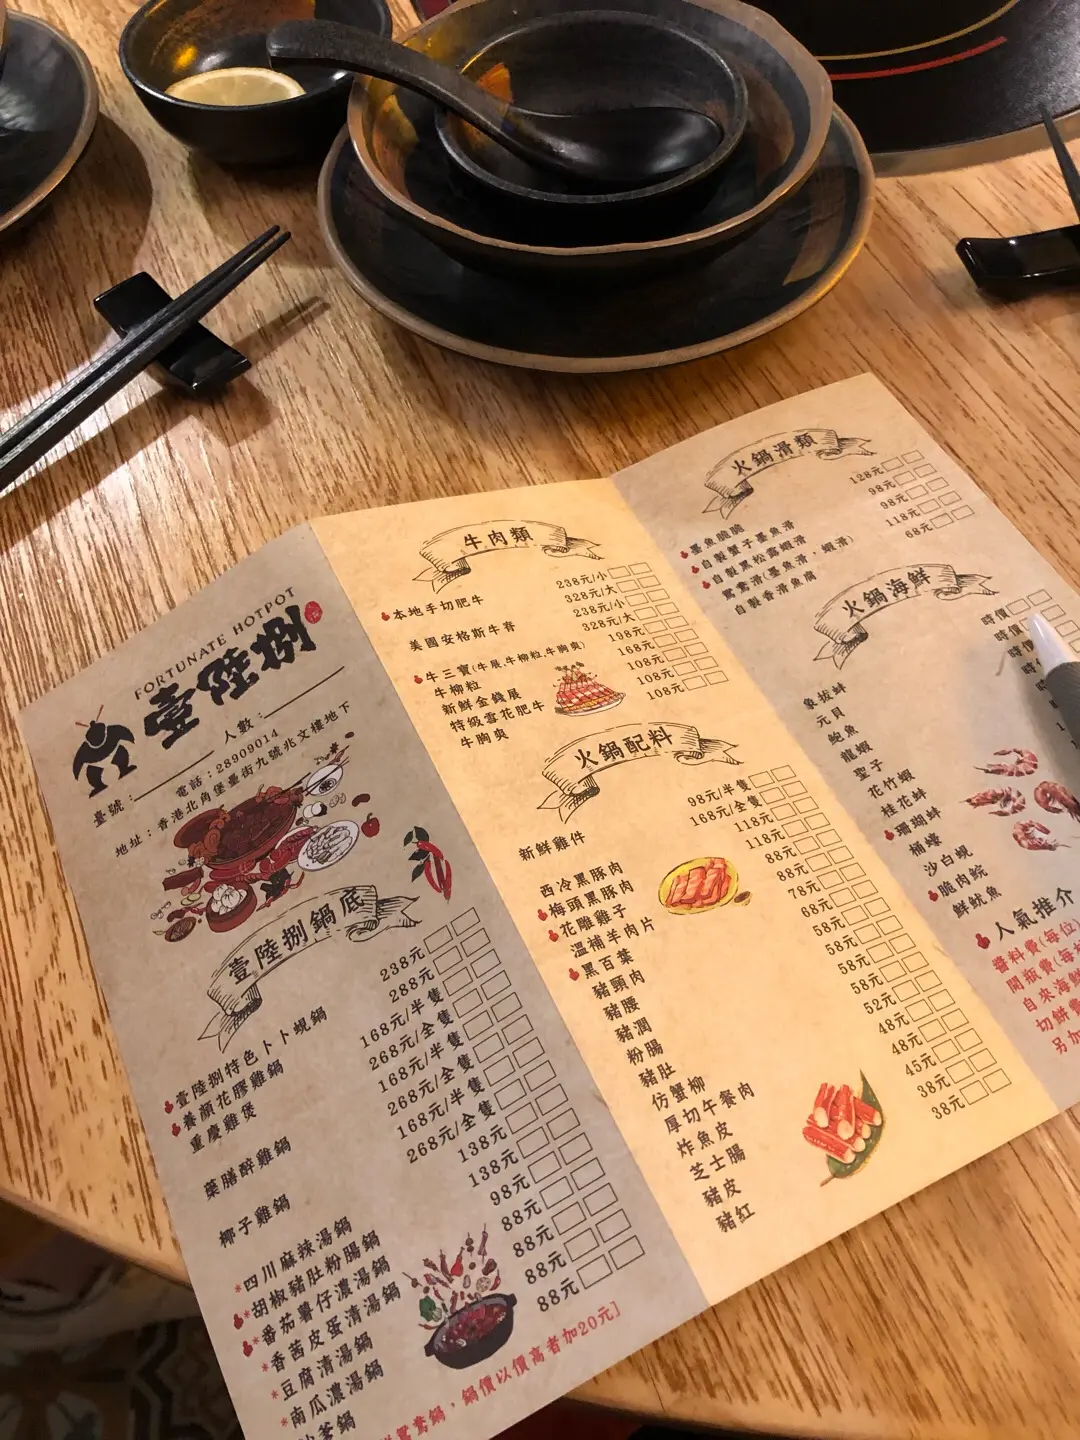 FORTUNATE HOTPOT
壹陸捌
臺號：
人數：
電話：28909014
地址：香港北角堡壘街九號兆文樓地下
壹陸捌鍋底
壹陸捌特色卜卜蜆鍋 238元
養顏花膠雞鍋 288元
重慶雞煲 168元/半隻
268元/全隻
藥膳醉雞鍋 168元/半隻
268元/全隻
椰子雞鍋 168元/半隻
268元/全隻
*四川麻辣湯鍋 138元
*胡椒豬肚粉腸鍋 138元
*番茄薯仔濃湯鍋 98元
*香茜皮蛋清湯鍋 88元
*豆腐清湯鍋 88元
*南瓜濃湯鍋 88元
88元
鴛鴦鍋，鍋價以價高者加20元】
牛肉類
本地手切肥牛 238元/小
328元/大
美國安格斯牛脊 238元/小
328元/大
牛三寶(牛展,牛柳粒,牛胸爽) 198元
牛柳粒 168元
新鮮金錢展 108元
特級雪花肥牛 108元
牛胸爽 108元
火鍋配料
新鮮雞件 98元/半隻
168元/全隻
西冷黑豚肉 118元
梅頭黑豚肉 118元
花雕雞子 88元
溫補羊肉片 88元
黑百葉 78元
豬頸肉 68元
豬腰 58元
豬潤 58元
粉腸 58元
豬肚 58元
仿蟹柳 52元
厚切午餐肉 48元
炸魚皮 48元
芝士腸 45元
豬皮 38元
豬紅 38元
火鍋滑類
墨魚脆脆 128元
自製蟹子墨魚滑 98元
自製黑松露蝦滑 98元
鴛鴦滑(墨魚滑，蝦滑) 118元
自製香滑魚腐 68元
火鍋海鮮
象拔蚌 時價
元貝 時價
鮑魚 時
龍蝦
聖子
花竹蝦
桂花蚌
珊瑚蚌
桶蠔
沙白蜆
脆肉鯇
鮮魷魚
人氣推介
醬料費(每位)
開瓶費(每
自來海鮮
切餅費
另加